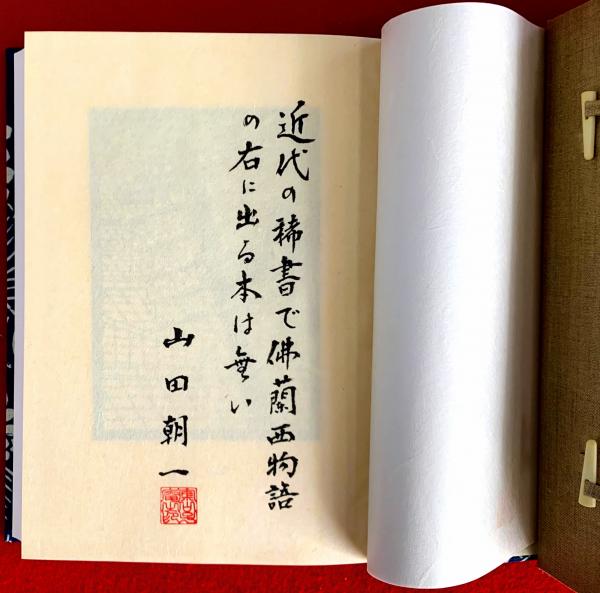 近代の稀書で佛蘭西物語
の右に出る本は無い
山田朝一